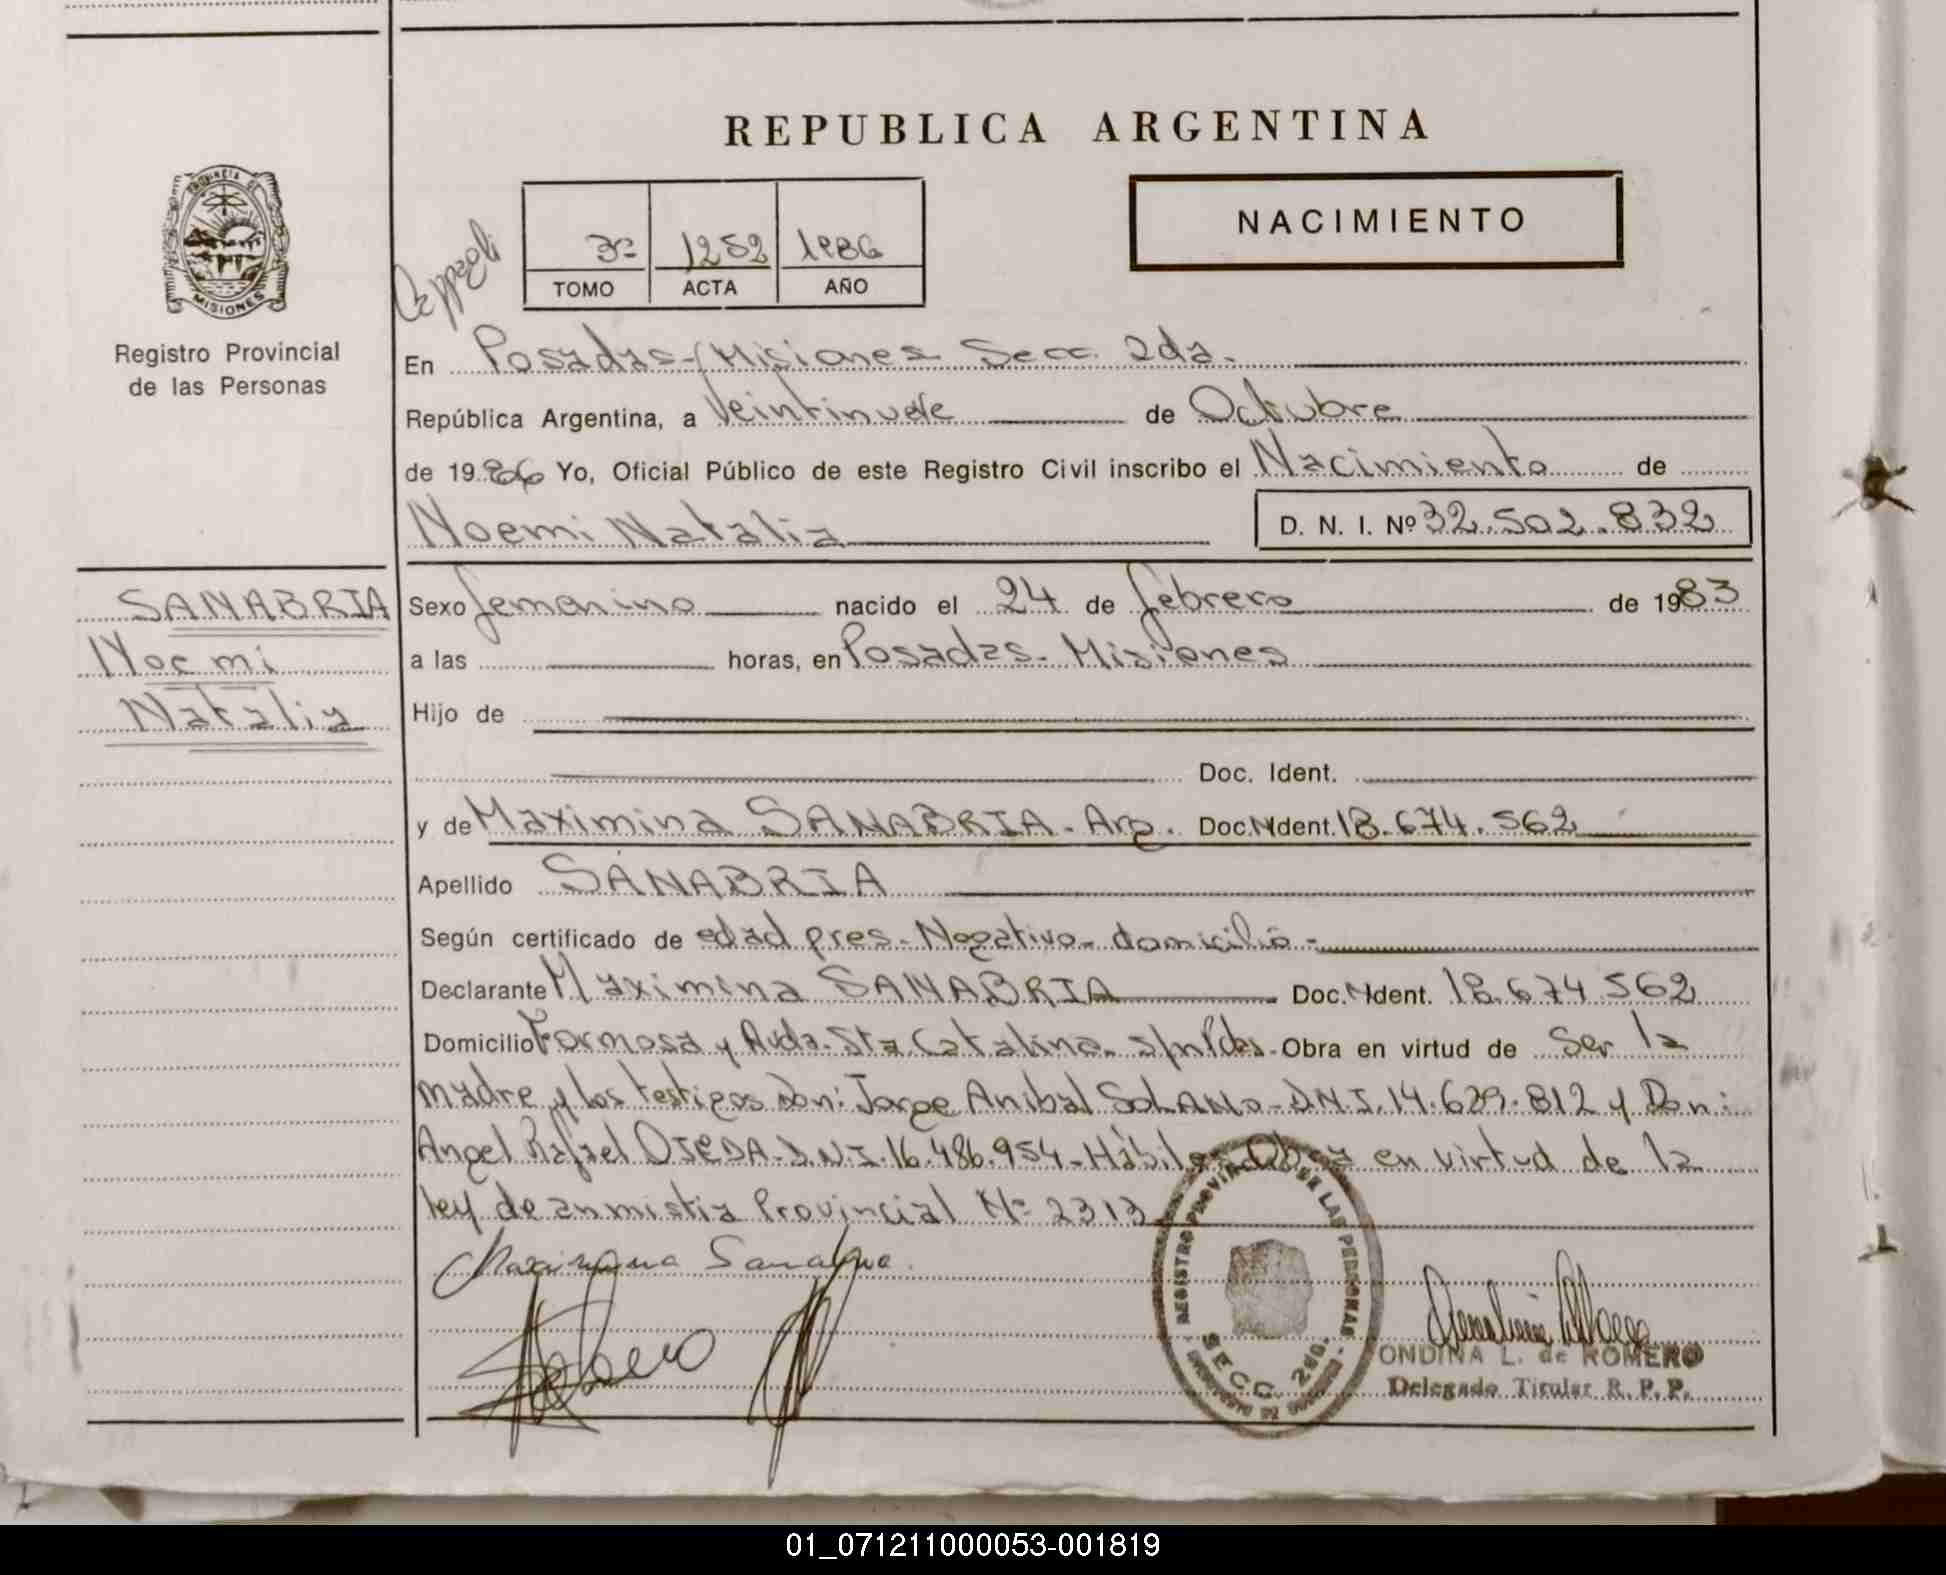 REPUBLICA ARGENTINA
PROVINCIA DE
MISIONES
Registro Provincial
de las Personas
NACIMIENTO
3º 1252 1986
TOMO ACTA AÑO
En Posadas-Misiones Secc. 2da.
República Argentina, a Veintinueve de Octubre
de 1986 Yo, Oficial Público de este Registro Civil inscribo el Nacimiento de
Noemi Natalia D. N. I. Nº 32.502.832
SANABRIA
Noemi
Natalia
Sexo femenino nacido el 24 de febrero de 1983
a las horas, en Posadas - Misiones
Hijo de
Doc. Ident.
y de Maximina SANABRIA - Arg. Doc. Ident. 18.674.562
Apellido SANABRIA
Según certificado de edad pres. - Negativo - domicilio -
Declarante Maximina SANABRIA Doc. Ident. 18.674.562
Domicilio Formosa y Avda. Sta Catalina - s/n Pdas. Obra en virtud de Ser la
madre y los testigos Don: Jorge Anibal SOLANO - D.N.I. 14.629.812 y Don:
Angel Rafael OJEDA - D.N.I. 16.486.954 - Hábiles - Obra en virtud de la
ley de anmistia Provincial Nº 2313
Maximina Sanabria
REGISTRO PROVINCIAL DE LAS PERSONAS
SECC. 2da.
ONDINA L. de ROMERO
Delegado Titular R. P. P.
01_071211000053-001819